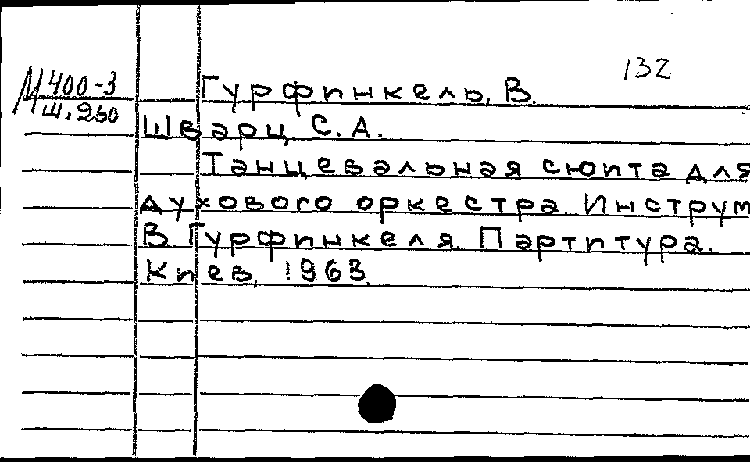 132
М 400-3
Ш. 250
Гурфинкель, В.
Шварц, С.А.
Танцевальная сюита для
духового оркестра. Инструм
В. Гурфинкеля. Партитура.
Киев, 1963.